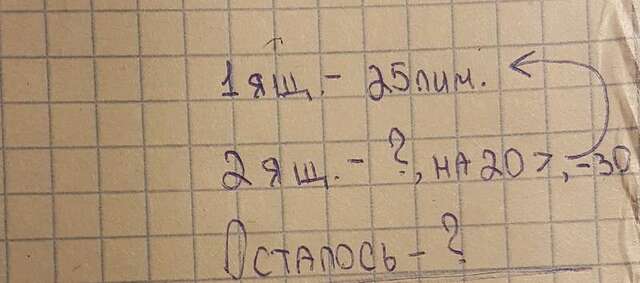 1 ящ. - 25 лим.
2 ящ. - ?, на 20 >, -30
Осталось - ?